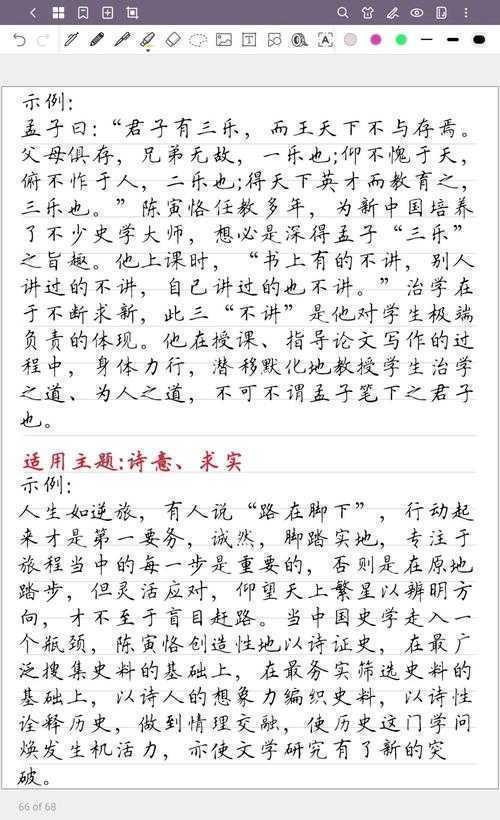 示例：
孟子曰：“君子有三乐，而王天下不与存焉。
父母俱存，兄弟无故，一乐也;仰不愧于天，
俯不怍于人，二乐也;得天下英才而教育之，
三乐也。”陈寅恪任教多年，为新中国培养
了不少史学大师，想必是深得孟子“三乐”
之旨趣。他上课时，“书上有的不讲，别人
讲过的不讲，自己讲过的也不讲。”治学在
于不断求新，此三“不讲”是他对学生极端
负责的体现。他在授课、指导论文写作的过
程中，身体力行，潜移默化地教授学生治学
之道、为人之道，不可不谓孟子笔下之君子
也。
适用主题:诗意、求实
示例：
人生如逆旅，有人说“路在脚下”，行动起
来才是第一要务，诚然，脚踏实地，专注于
旅程当中的每一步是重要的，否则是在原地
踏步，但灵活应对，仰望天上繁星以辨明方
向，才不至于盲目赶路。当中国史学走入一
个瓶颈，陈寅恪创造性地以诗证史，在最广
泛搜集史料的基础上，在最务实筛选史料的
基础上，以诗人的想象力编织史料，以诗性
诠释历史，做到情理交融，使历史这门学问
焕发生机活力，亦使文学研究有了新的突
破。
66 of 68